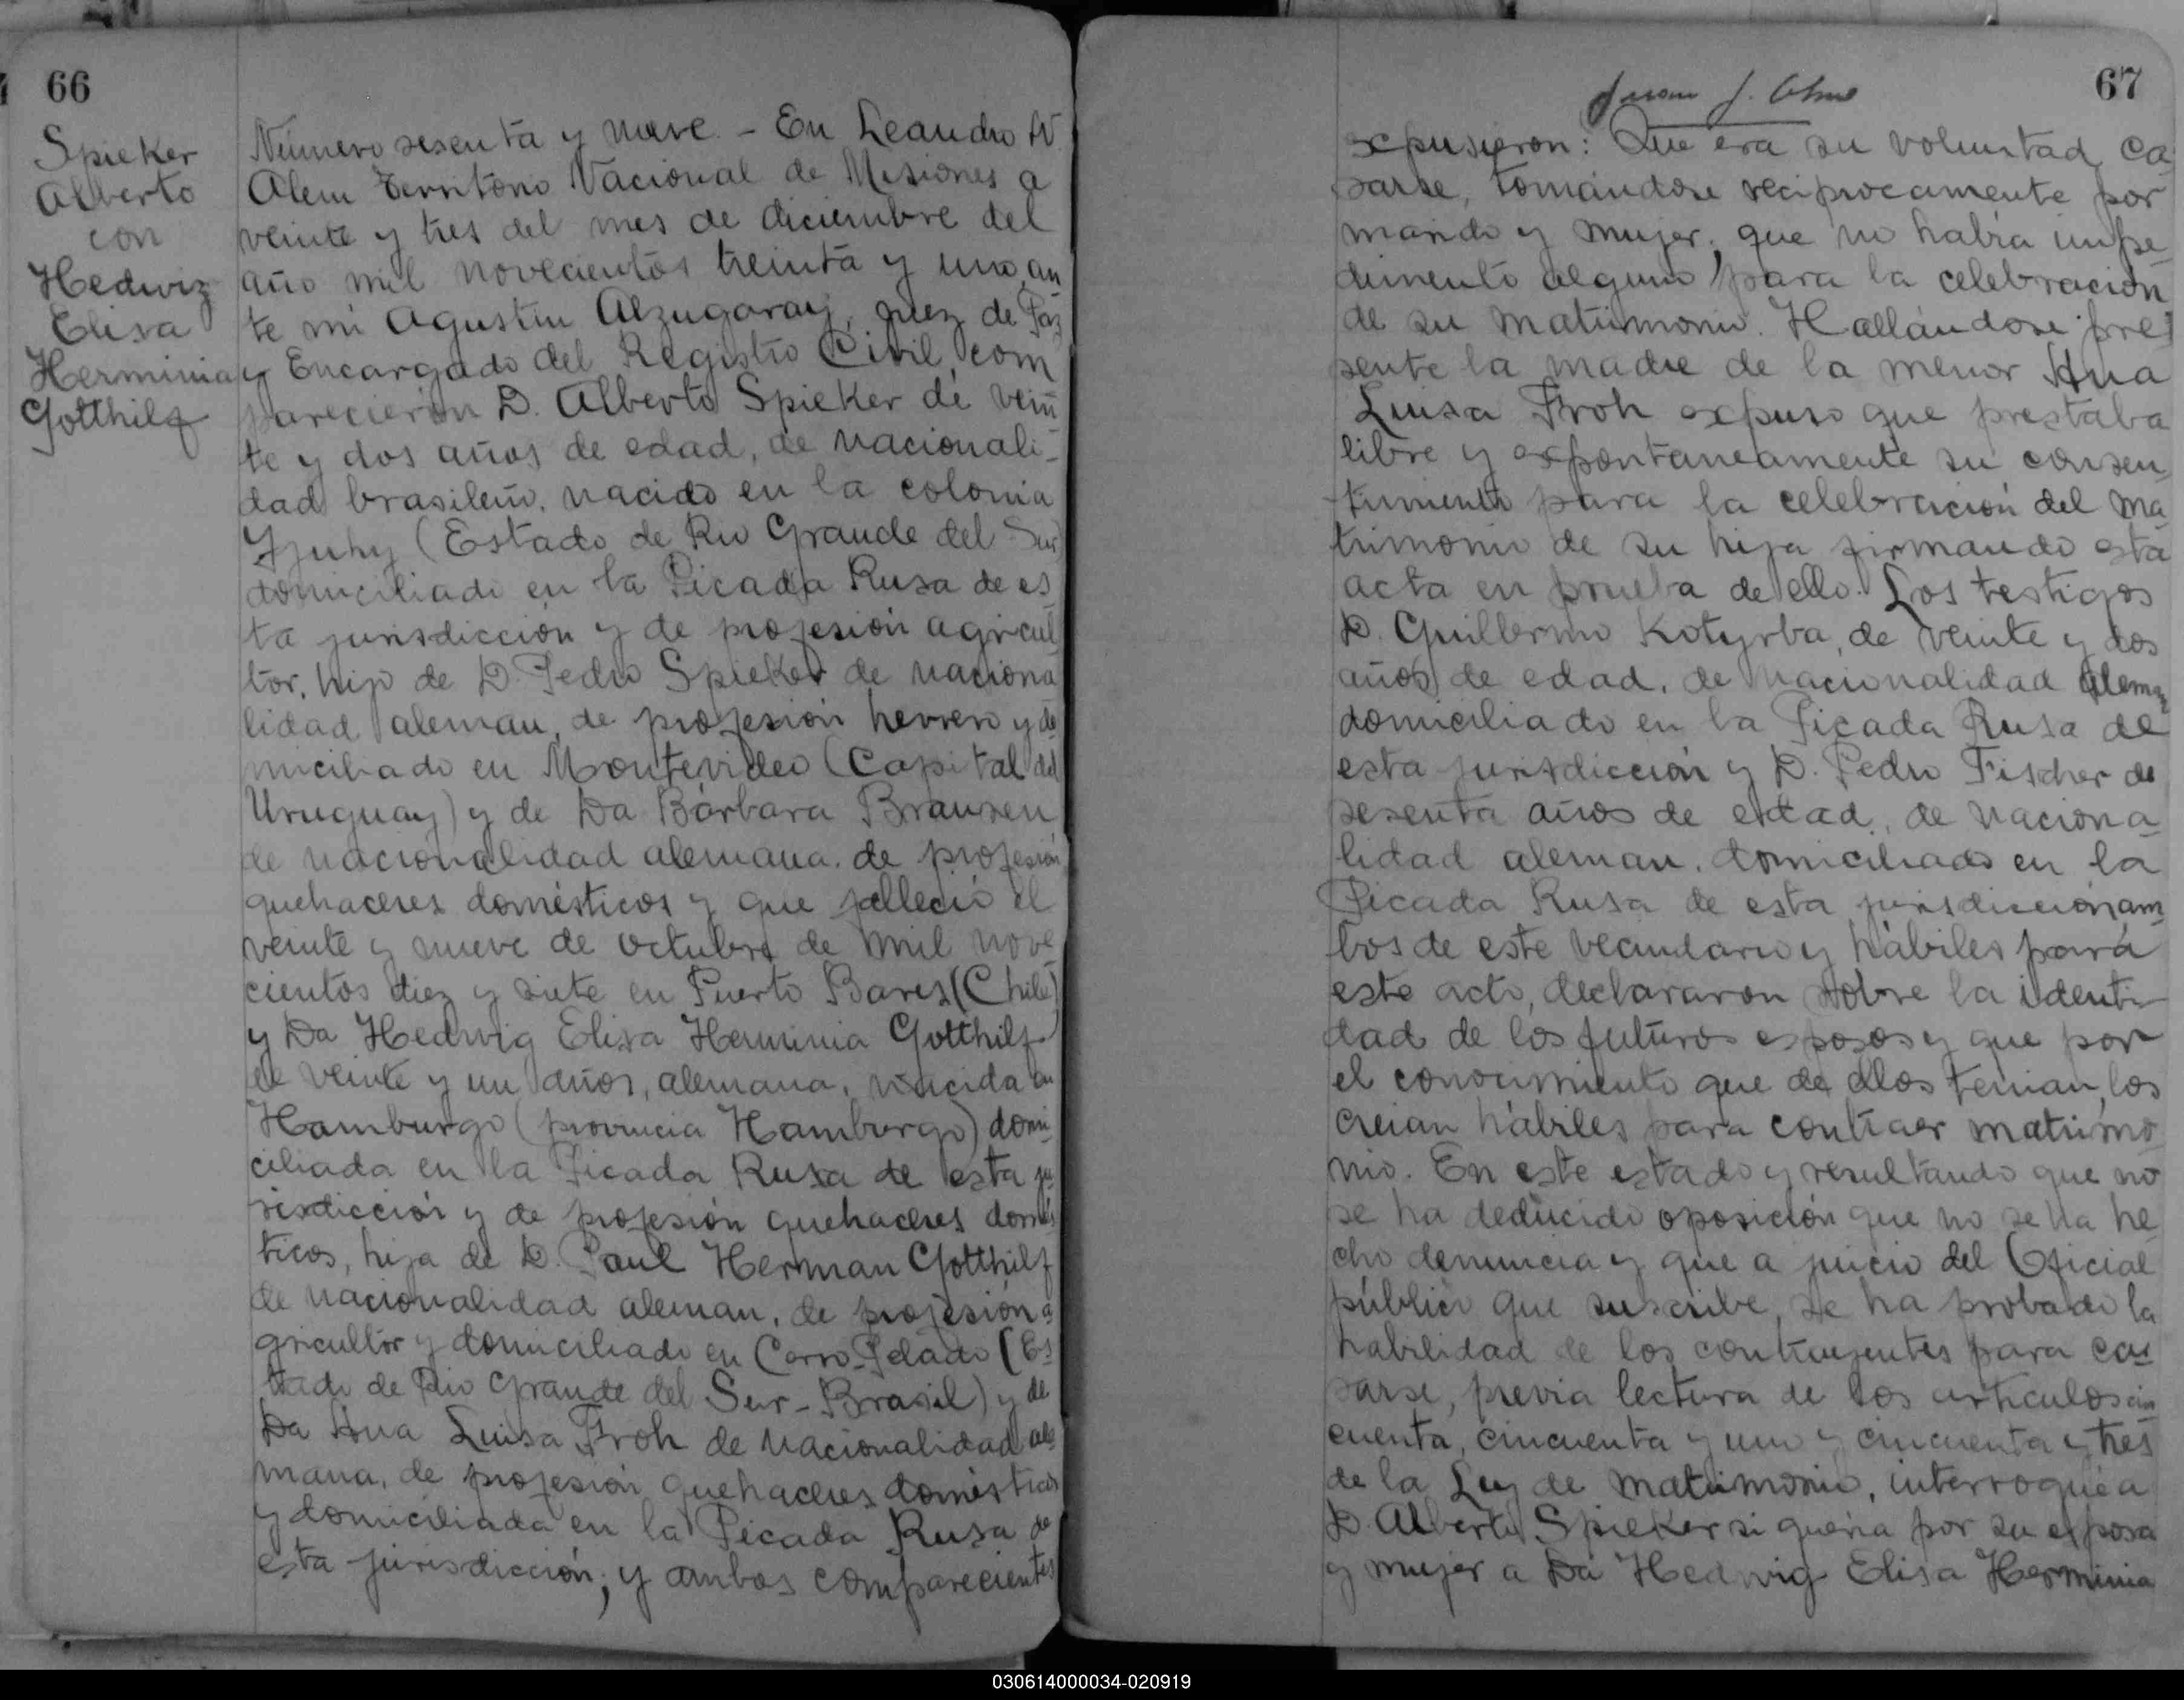 66
Spieker
Alberto
con
Hedwig
Elisa
Herminia
Gotthilf
Número sesenta y nueve. - En Leandro N.
Alem Territorio Nacional de Misiones a
veinte y tres del mes de diciembre del
año mil novecientos treinta y uno, an
te mi Agustin Alzugaray, juez de Paz
y Encargado del Registro Civil, com
parecieron D. Alberto Spieker de vein
te y dos años de edad, de nacionali-
dad brasileño, nacido en la colonia
Yjuhy (Estado de Rio Grande del Sur)
domiciliado en la Picada Rusa de es
ta jurisdicción y de profesión agricul
tor, hijo de D. Pedro Spieker de naciona
lidad aleman, de profesión herrero y do
miciliado en Montevideo (Capital del
Uruguay) y de Da Bárbara Brausen
de nacionalidad alemana, de profesión
quehaceres domésticos y que falleció el
veinte y nueve de octubre de mil nove
cientos diez y siete en Puerto Bares (Chile)
y Da Hedwig Elisa Herminia Gotthilf
de veinte y un años, alemana, nacida en
Hamburgo (provincia Hamburgo) domi
ciliada en la Picada Rusa de esta ju
risdicción y de profesión quehaceres domés
ticos, hija de D. Paul Herman Gotthilf
de nacionalidad aleman, de profesión a
gricultor y domiciliado en Cerro-Pelado (Es
tado de Rio Grande del Sur - Brasil) y de
Da Ana Luisa Froh de nacionalidad ale
mana, de profesión quehaceres domésticos
y domiciliada en la Picada Rusa de
esta jurisdicción; y ambos comparecientes
67
Juan J.
expusieron: Que era su voluntad ca
sarse, tomándose reciprocamente por
marido y mujer, que no habia impe
dimento alguno para la celebración
de su matrimonio. Hallándose pre
sente la madre de la menor Ana
Luisa Froh expuso que prestaba
libre y expontaneamente su consen
timiento para la celebración del ma
trimonio de su hija firmando esta
acta en prueba de ello. Los testigos
D. Guillermo Kotyrba, de veinte y dos
años de edad, de nacionalidad aleman
domiciliado en la Picada Rusa de
esta jurisdicción y D. Pedro Fischer de
sesenta años de edad, de naciona-
lidad aleman, domiciliado en la
Picada Rusa de esta jurisdicción, am
bos de este vecindario y hábiles para
este acto, declararon sobre la identi
dad de los futuros esposos y que por
el conocimiento que de ellos tenian, los
creian hábiles para contraer matrimo
nio. En este estado y resultando que no
se ha deducido oposición que no se ha he
cho denuncia y que a juicio del Oficial
público que suscribe, se ha probado la
habilidad de los contrayentes para ca
sarse, previa lectura de los articulos cin
cuenta, cincuenta y uno y cincuenta y tres
de la Ley de matrimonio, interrogué a
D. Alberto Spieker si queria por su esposa
y mujer a Da Hedwig Elisa Herminia
030614000034-020919